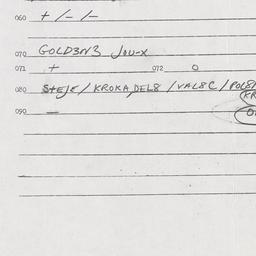 060 + / - / -
070 GOLD3N3 Jou-x
071 + 072 0
080 STEJE / KROKADEL8 / VAL8C / POL8
KR
090 -
0